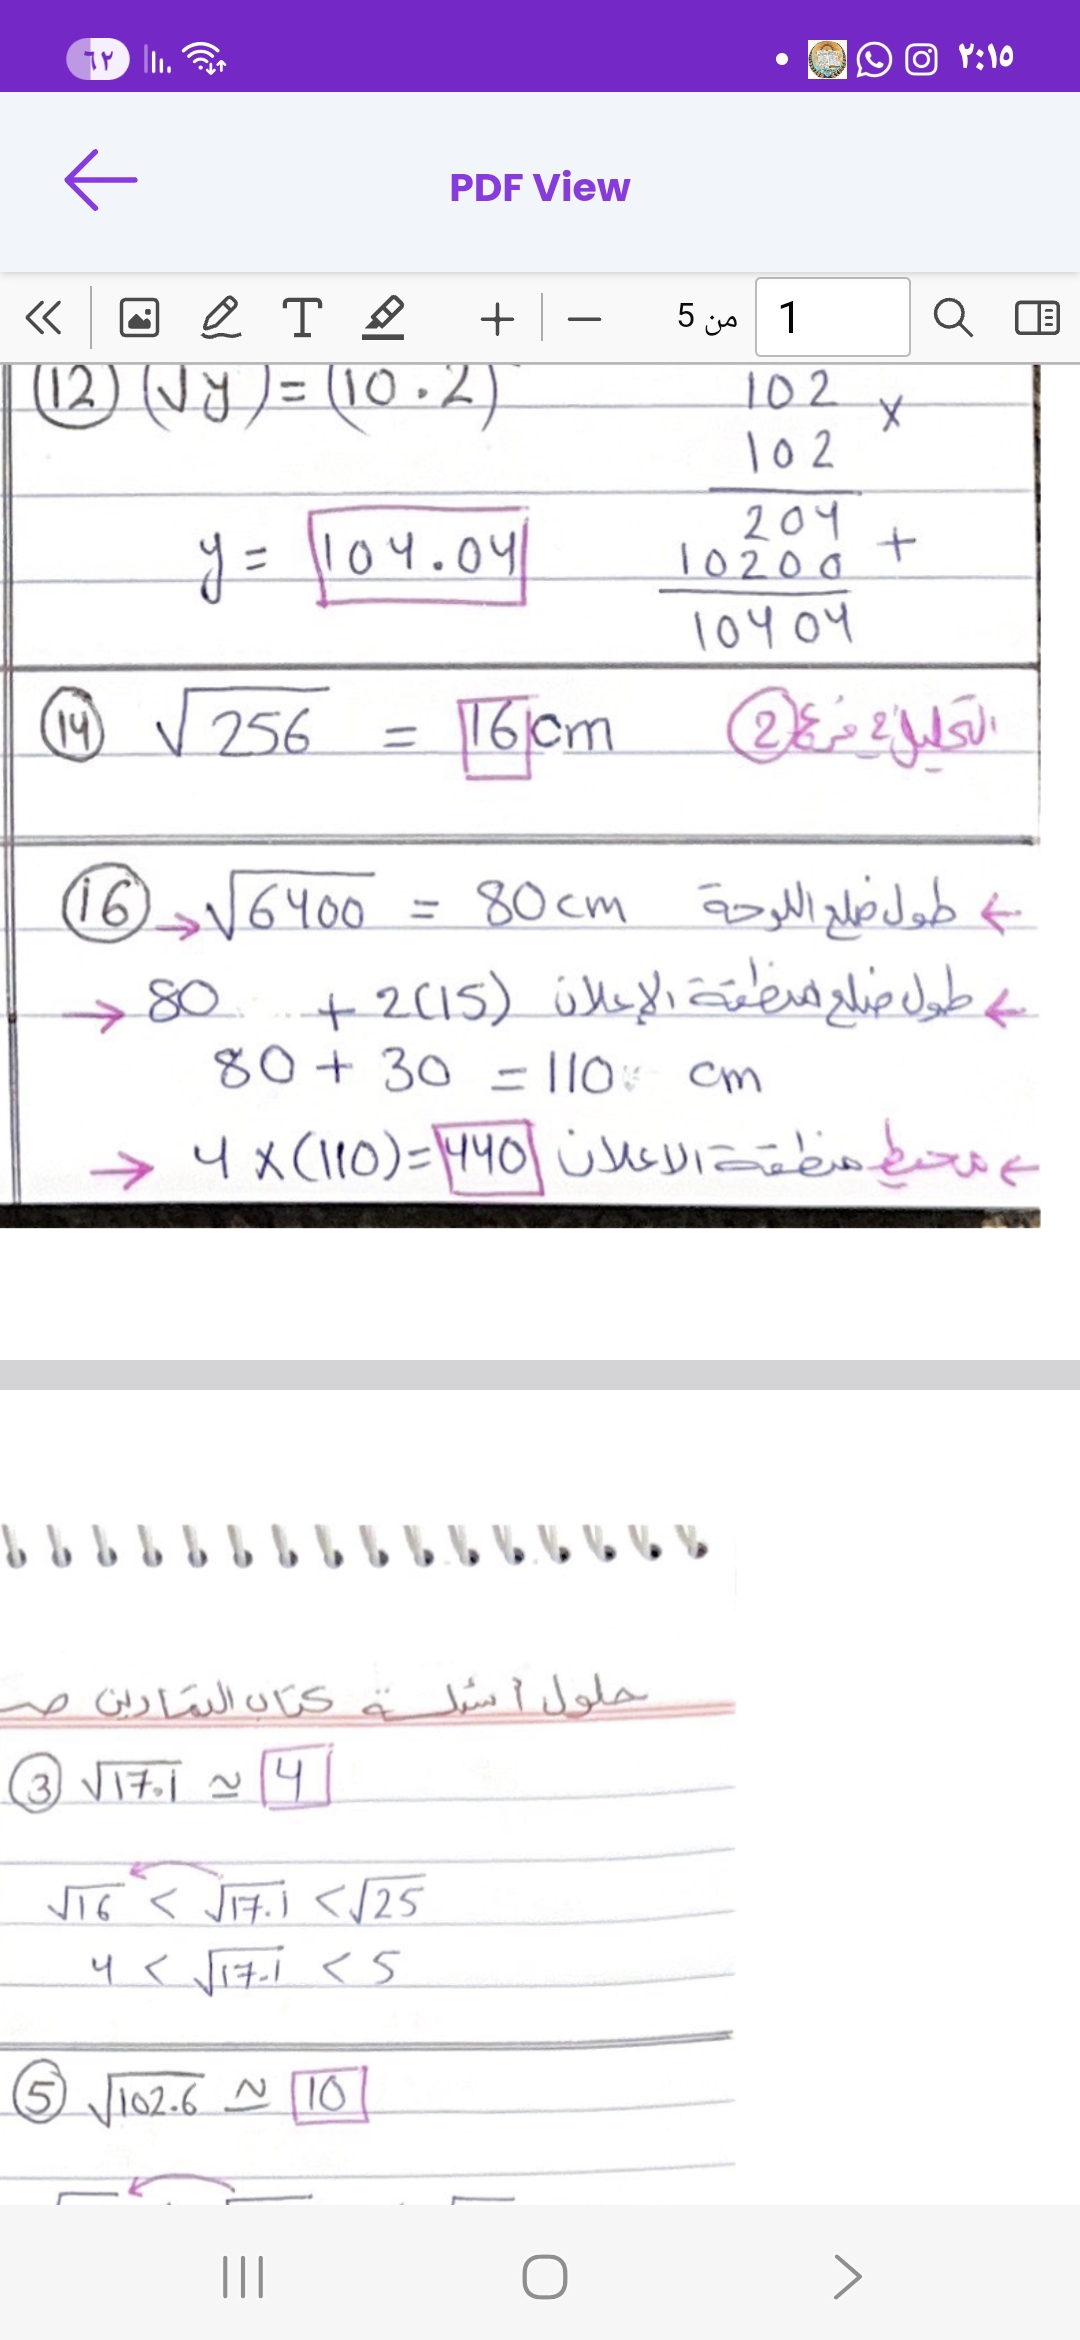 ٦٢
٢:١٥
PDF View
1 من 5
(12) (√y) = (10.2)
102
×
102
204
+
10200
10404
y = 104.04
(14) √256 = 16 cm
التحليل في فرع (2)
(16) → √6400 = 80 cm ← طول ضلع اللوحة
→ 80 + 2(15) ← طول ضلع منطقة الإعلان
80 + 30 = 110 cm
→ 4 × (110) = 440 ← محيط منطقة الاعلان
حلول أسئلة كتاب التمارين صـ
(3) √17.1 ≃ 4
√16 < √17.1 < √25
4 < √17.1 < 5
(5) √102.6 ≃ 10